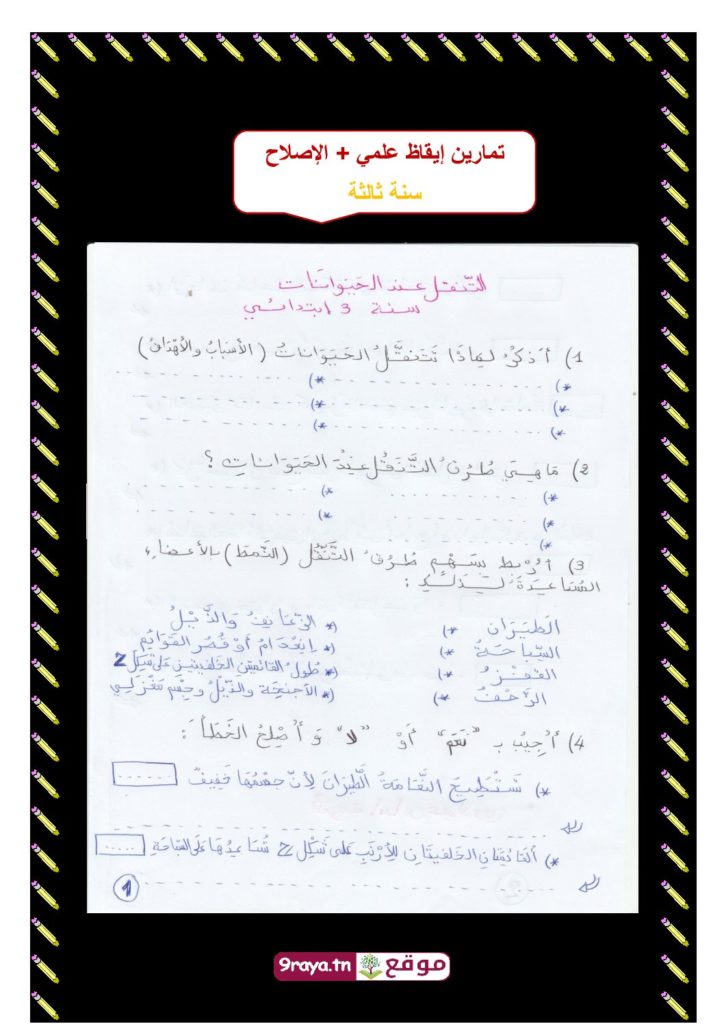 تمارين إيقاظ علمي + الإصلاح
سنة ثالثة
التنقل عند الحيوانات
سنة 3 ابتدائي
1) أذكر لماذا تتنقل الحيوانات (الأسباب والأهداف)
*) . . . . . . . . . . *) . . . . . . . . . .
*) . . . . . . . . . . *) . . . . . . . . . .
*) . . . . . . . . . . *) . . . . . . . . . .
2) ما هي طرق التنقل عند الحيوانات ؟
*) . . . . . . . . . . *) . . . . . . . . . .
*) . . . . . . . . . . *) . . . . . . . . . .
*)
3) أربط بسهم طرق التنقل (النمط) بالأعضاء
المساعدة لذلك :
الطيران *) *) الزعانف والذيل
السباحة *) *) انعدام أو قصر القوائم
القفز *) *) طول القائمتين الخلفيتين على شكل Z
الزحف *) *) الأجنحة والذيل وجسم مغزلي
4) أجيب بـ "نعم" أو "لا" و أصلح الخطأ :
*) تستطيع النعامة الطيران لأن جسمها خفيف ......
. . . . . . . . . .
*) القائمتان الخلفيتان للأرنب على شكل Z تساعدها على السباحة .....
. . . . . . . . . .
1
موقع 9raya.tn